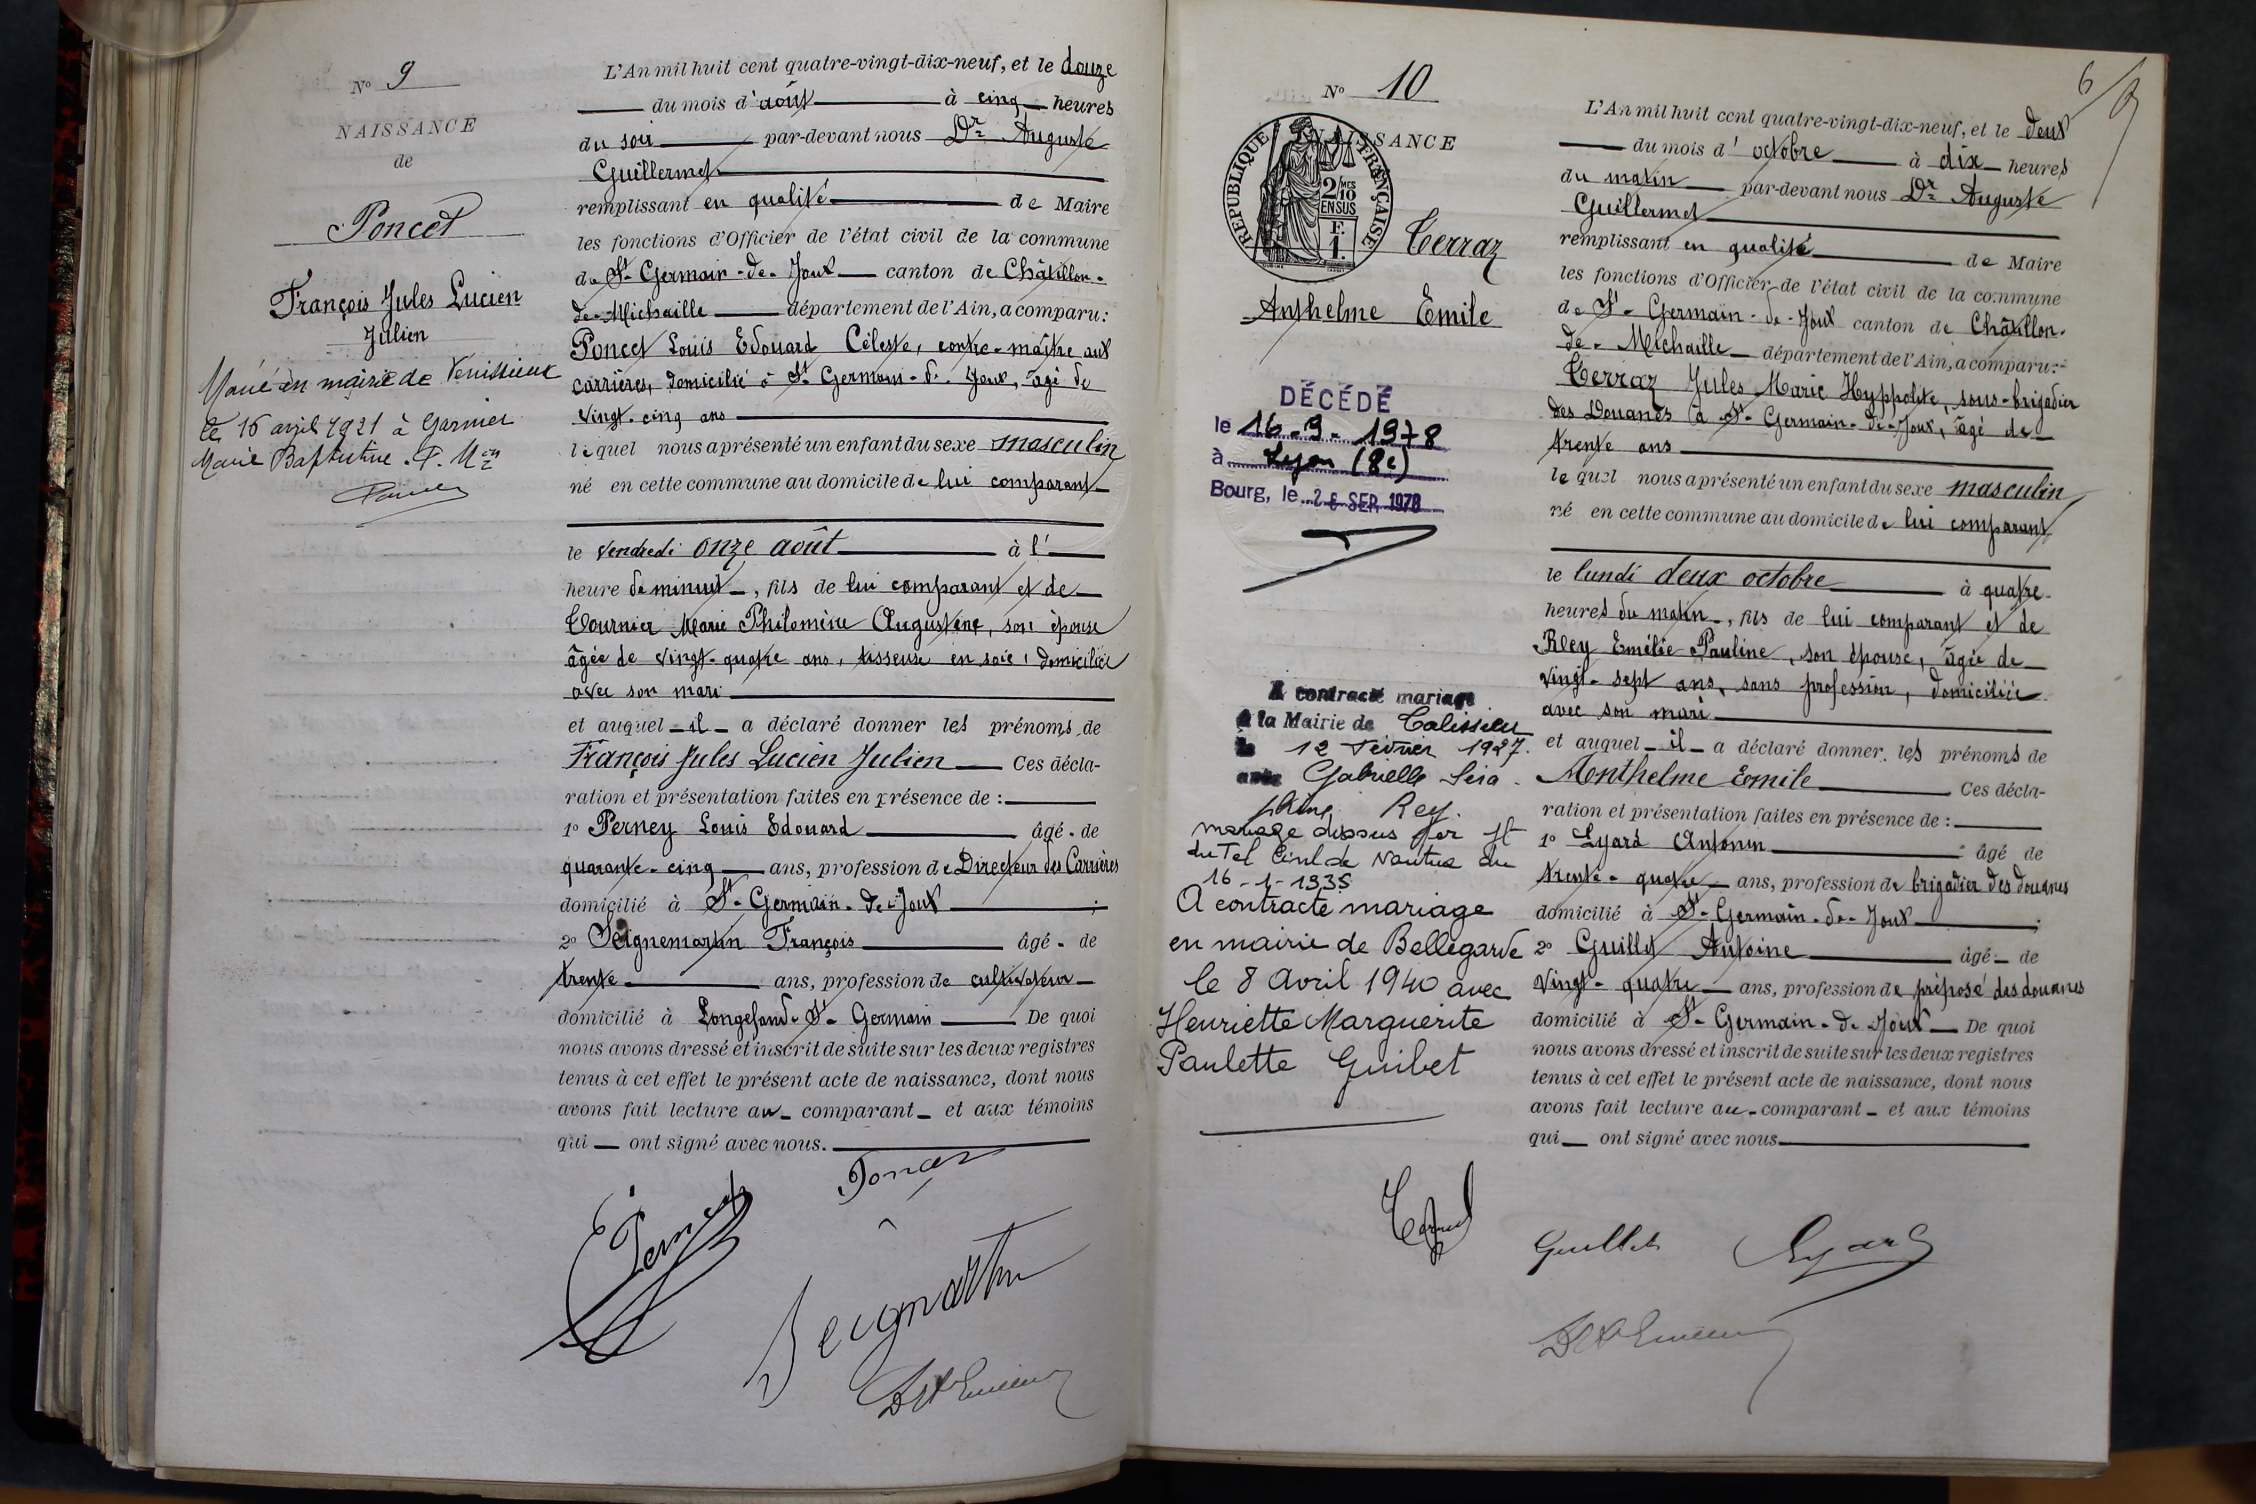 N° 9
NAISSANCE
de
Poncet
François Jules Lucien
Julien
Marié en mairie de Venissieux
le 16 avril 1921 à Garnier
Marie Baptistine.
L'An mil huit cent quatre-vingt-dix-neuf, et le douze
du mois d'août à cinq heures
du soir par-devant nous Dr Auguste
Guillermet
remplissant en qualité de Maire
les fonctions d'Officier de l'état civil de la commune
de St-Germain-de-Joux canton de Châtillon-
de-Michaille département de l'Ain, a comparu:
Poncet Louis Edouard Céleste, contre-maître aux
carrières, domicilié à St Germain-de-Joux, âgé de
vingt-cinq ans
lequel nous a présenté un enfant du sexe masculin
né en cette commune au domicile de lui comparant
le vendredi onze août à l'
heure de minuit, fils de lui comparant et de
Tournier Marie Philomène Augustine, son épouse
âgée de vingt-quatre ans, tisseuse en soie, domiciliée
avec son mari
et auquel il a déclaré donner les prénoms de
François Jules Lucien Julien Ces décla-
ration et présentation faites en présence de :
1° Perney Louis Edouard âgé de
quarante-cinq ans, profession de Directeur des Carrières
domicilié à St-Germain-de-Joux ;
2° Seignemartin François âgé de
trente ans, profession de cultivateur
domicilié à Longefand-St-Germain De quoi
nous avons dressé et inscrit de suite sur les deux registres
tenus à cet effet le présent acte de naissance, dont nous
avons fait lecture au comparant et aux témoins
qui ont signé avec nous.
Poncet
Perney
Seignmartin
N° 10
NAISSANCE
RÉPUBLIQUE FRANÇAISE
2/10 MES
EN SUS
F.
1.
Terraz
Anthelme Emile
DÉCÉDÉ
le 16-9-1978
à Lyon (8e)
Bourg, le 26 SEP. 1978
A contracté mariage
à la Mairie de Talissieu
le 12 Février 1927.
avec Gabrielle
Rey.
mariage dissous par Jt
du Tel Civil de Nantua du
16-1-1935
A contracté mariage
en mairie de Bellegarde
le 8 Avril 1940 avec
Henriette Marguerite
Paulette Guibet
6
L'An mil huit cent quatre-vingt-dix-neuf, et le deux
du mois d'octobre à dix heures
du matin par-devant nous Dr Auguste
Guillermet
remplissant en qualité de Maire
les fonctions d'Officier de l'état civil de la commune
de St-Germain-de-Joux canton de Châtillon-
de-Michaille département de l'Ain, a comparu:
Terraz Jules Marie Hyppolite, sous-brigadier
des Douanes à St-Germain-de-Joux, âgé de
trente ans
lequel nous a présenté un enfant du sexe masculin
né en cette commune au domicile de lui comparant
le lundi deux octobre à quatre
heures du matin, fils de lui comparant et de
Rley Emélie Pauline, son épouse, âgée de
vingt-sept ans, sans profession, domiciliée
avec son mari
et auquel il a déclaré donner les prénoms de
Anthelme Emile Ces décla-
ration et présentation faites en présence de :
1° Lyard Antonin âgé de
trente-quatre ans, profession de brigadier des douanes
domicilié à St-Germain-de-Joux ;
2° Guillet Antoine âgé de
vingt-quatre ans, profession de préposé des douanes
domicilié à St-Germain-de-Joux De quoi
nous avons dressé et inscrit de suite sur les deux registres
tenus à cet effet le présent acte de naissance, dont nous
avons fait lecture au comparant et aux témoins
qui ont signé avec nous
Guillet Lyard